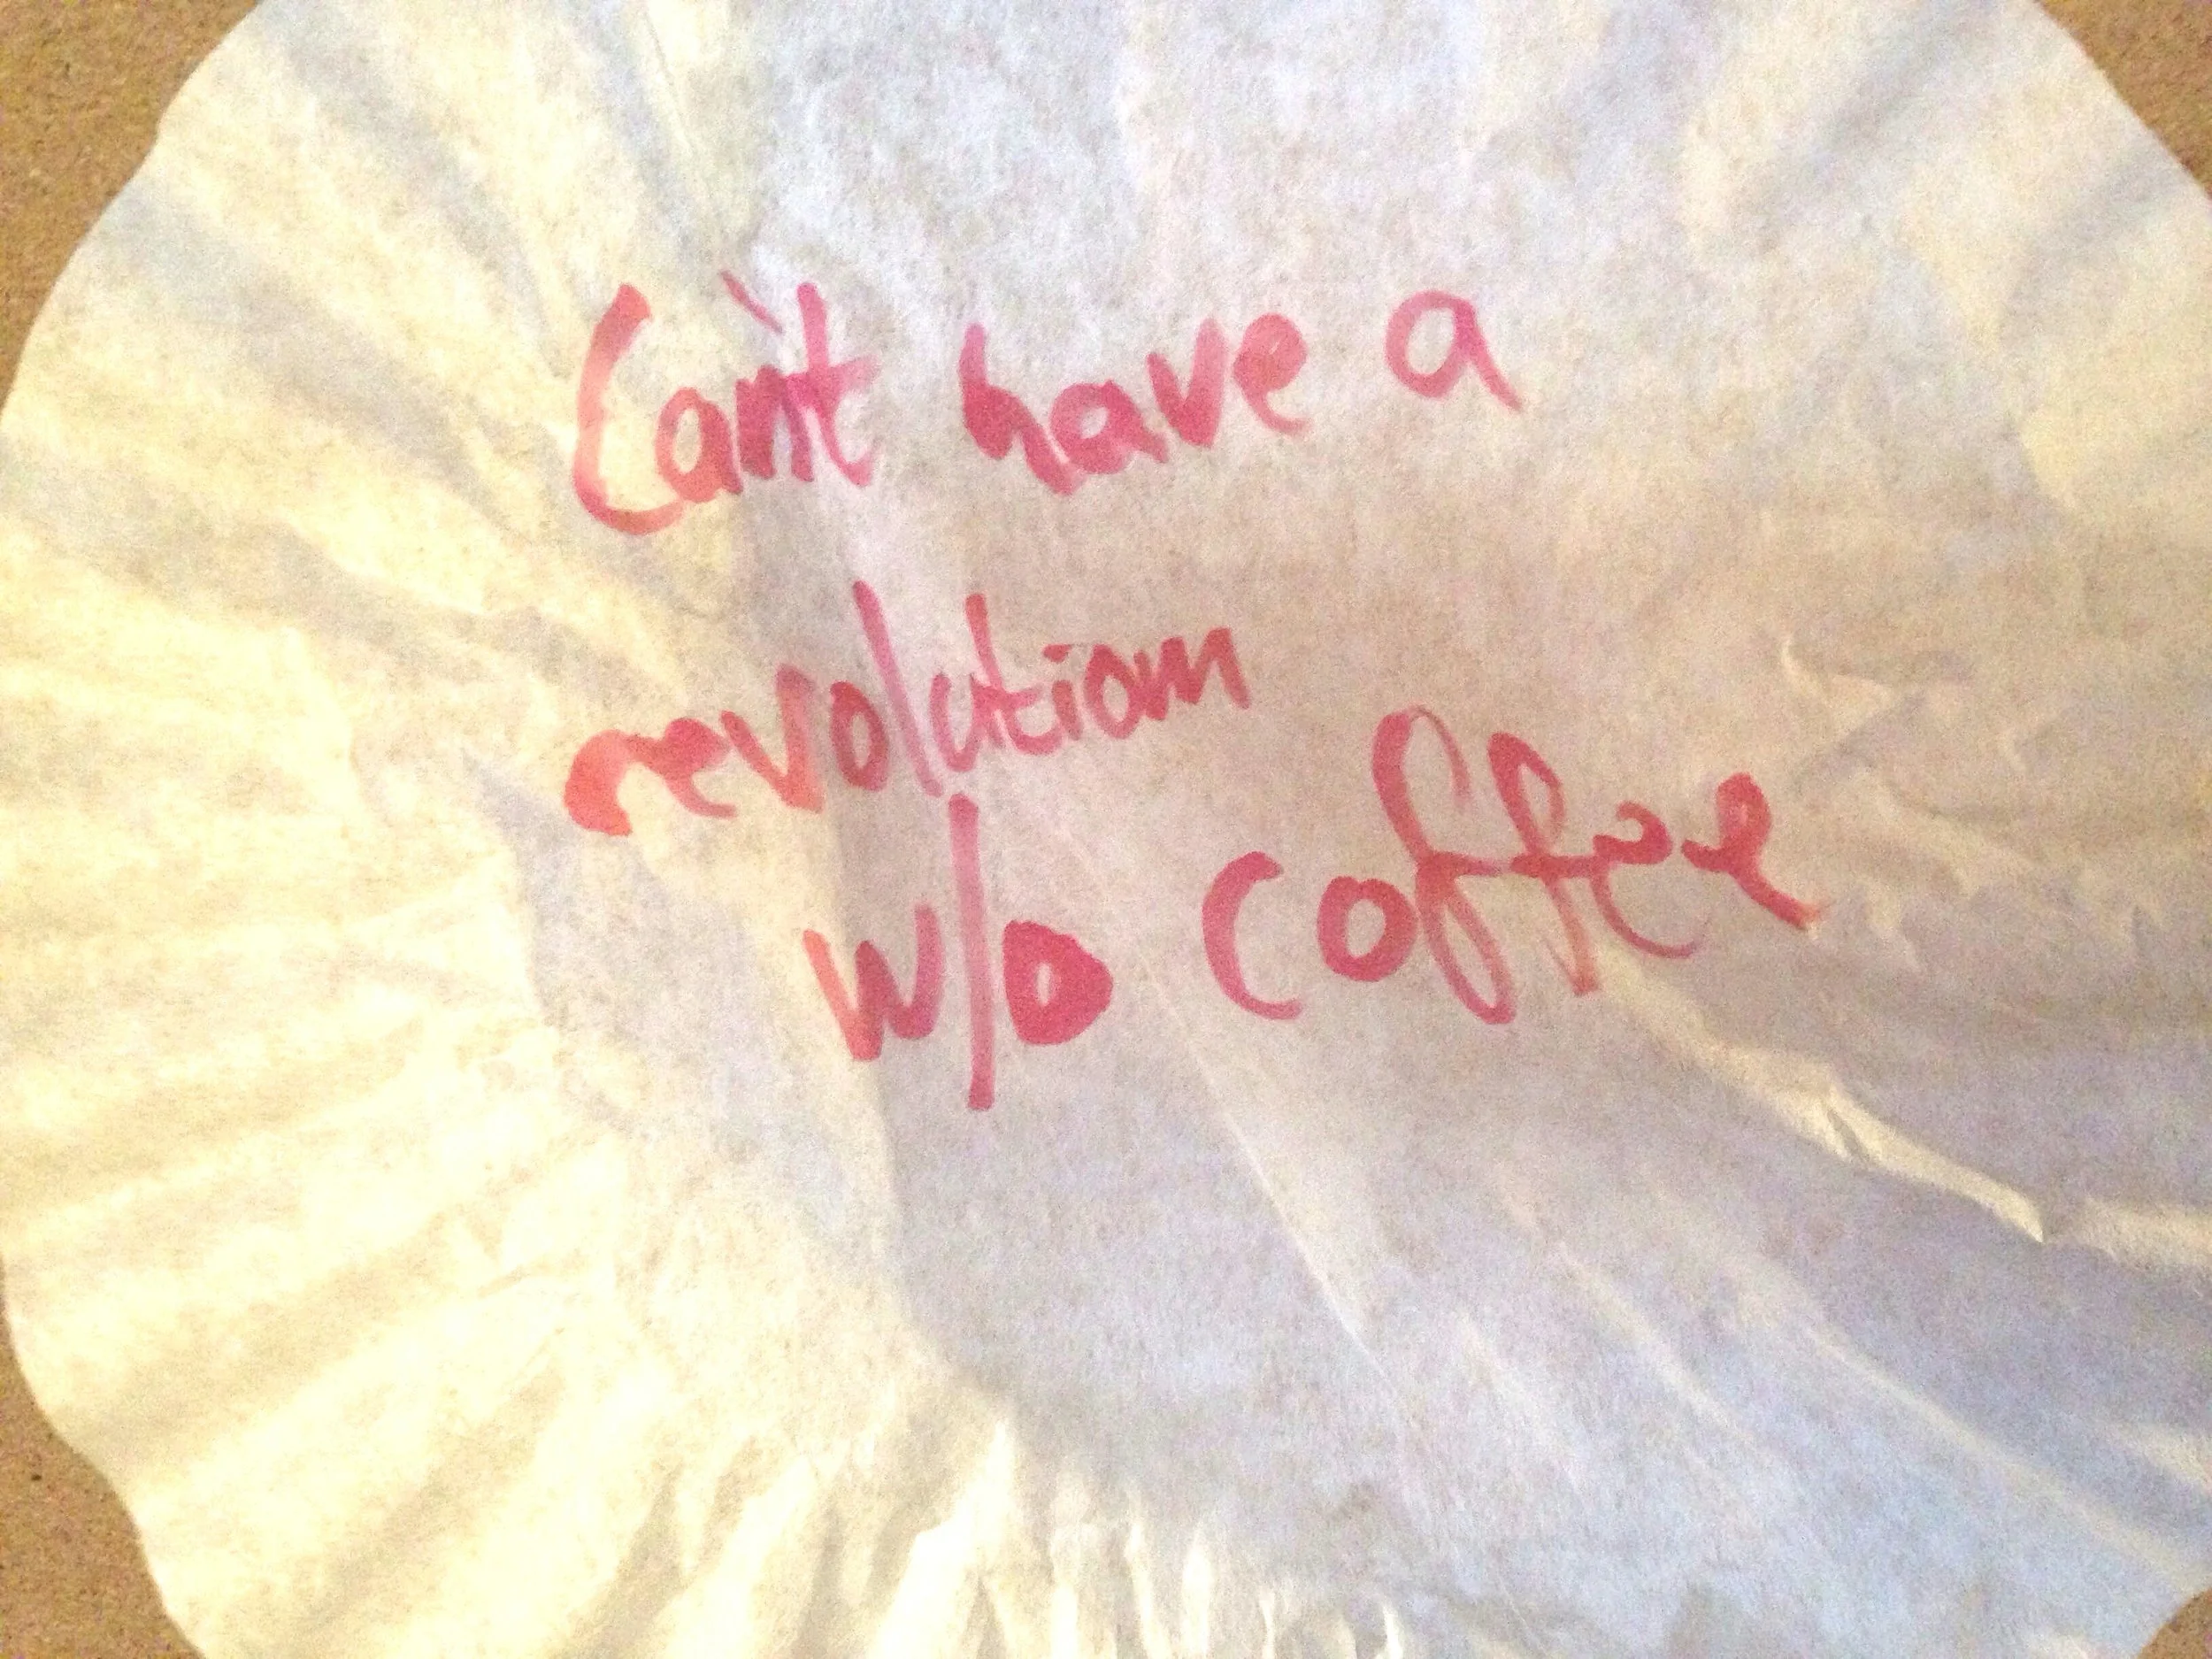 Can't have a
revolution
w/o coffee